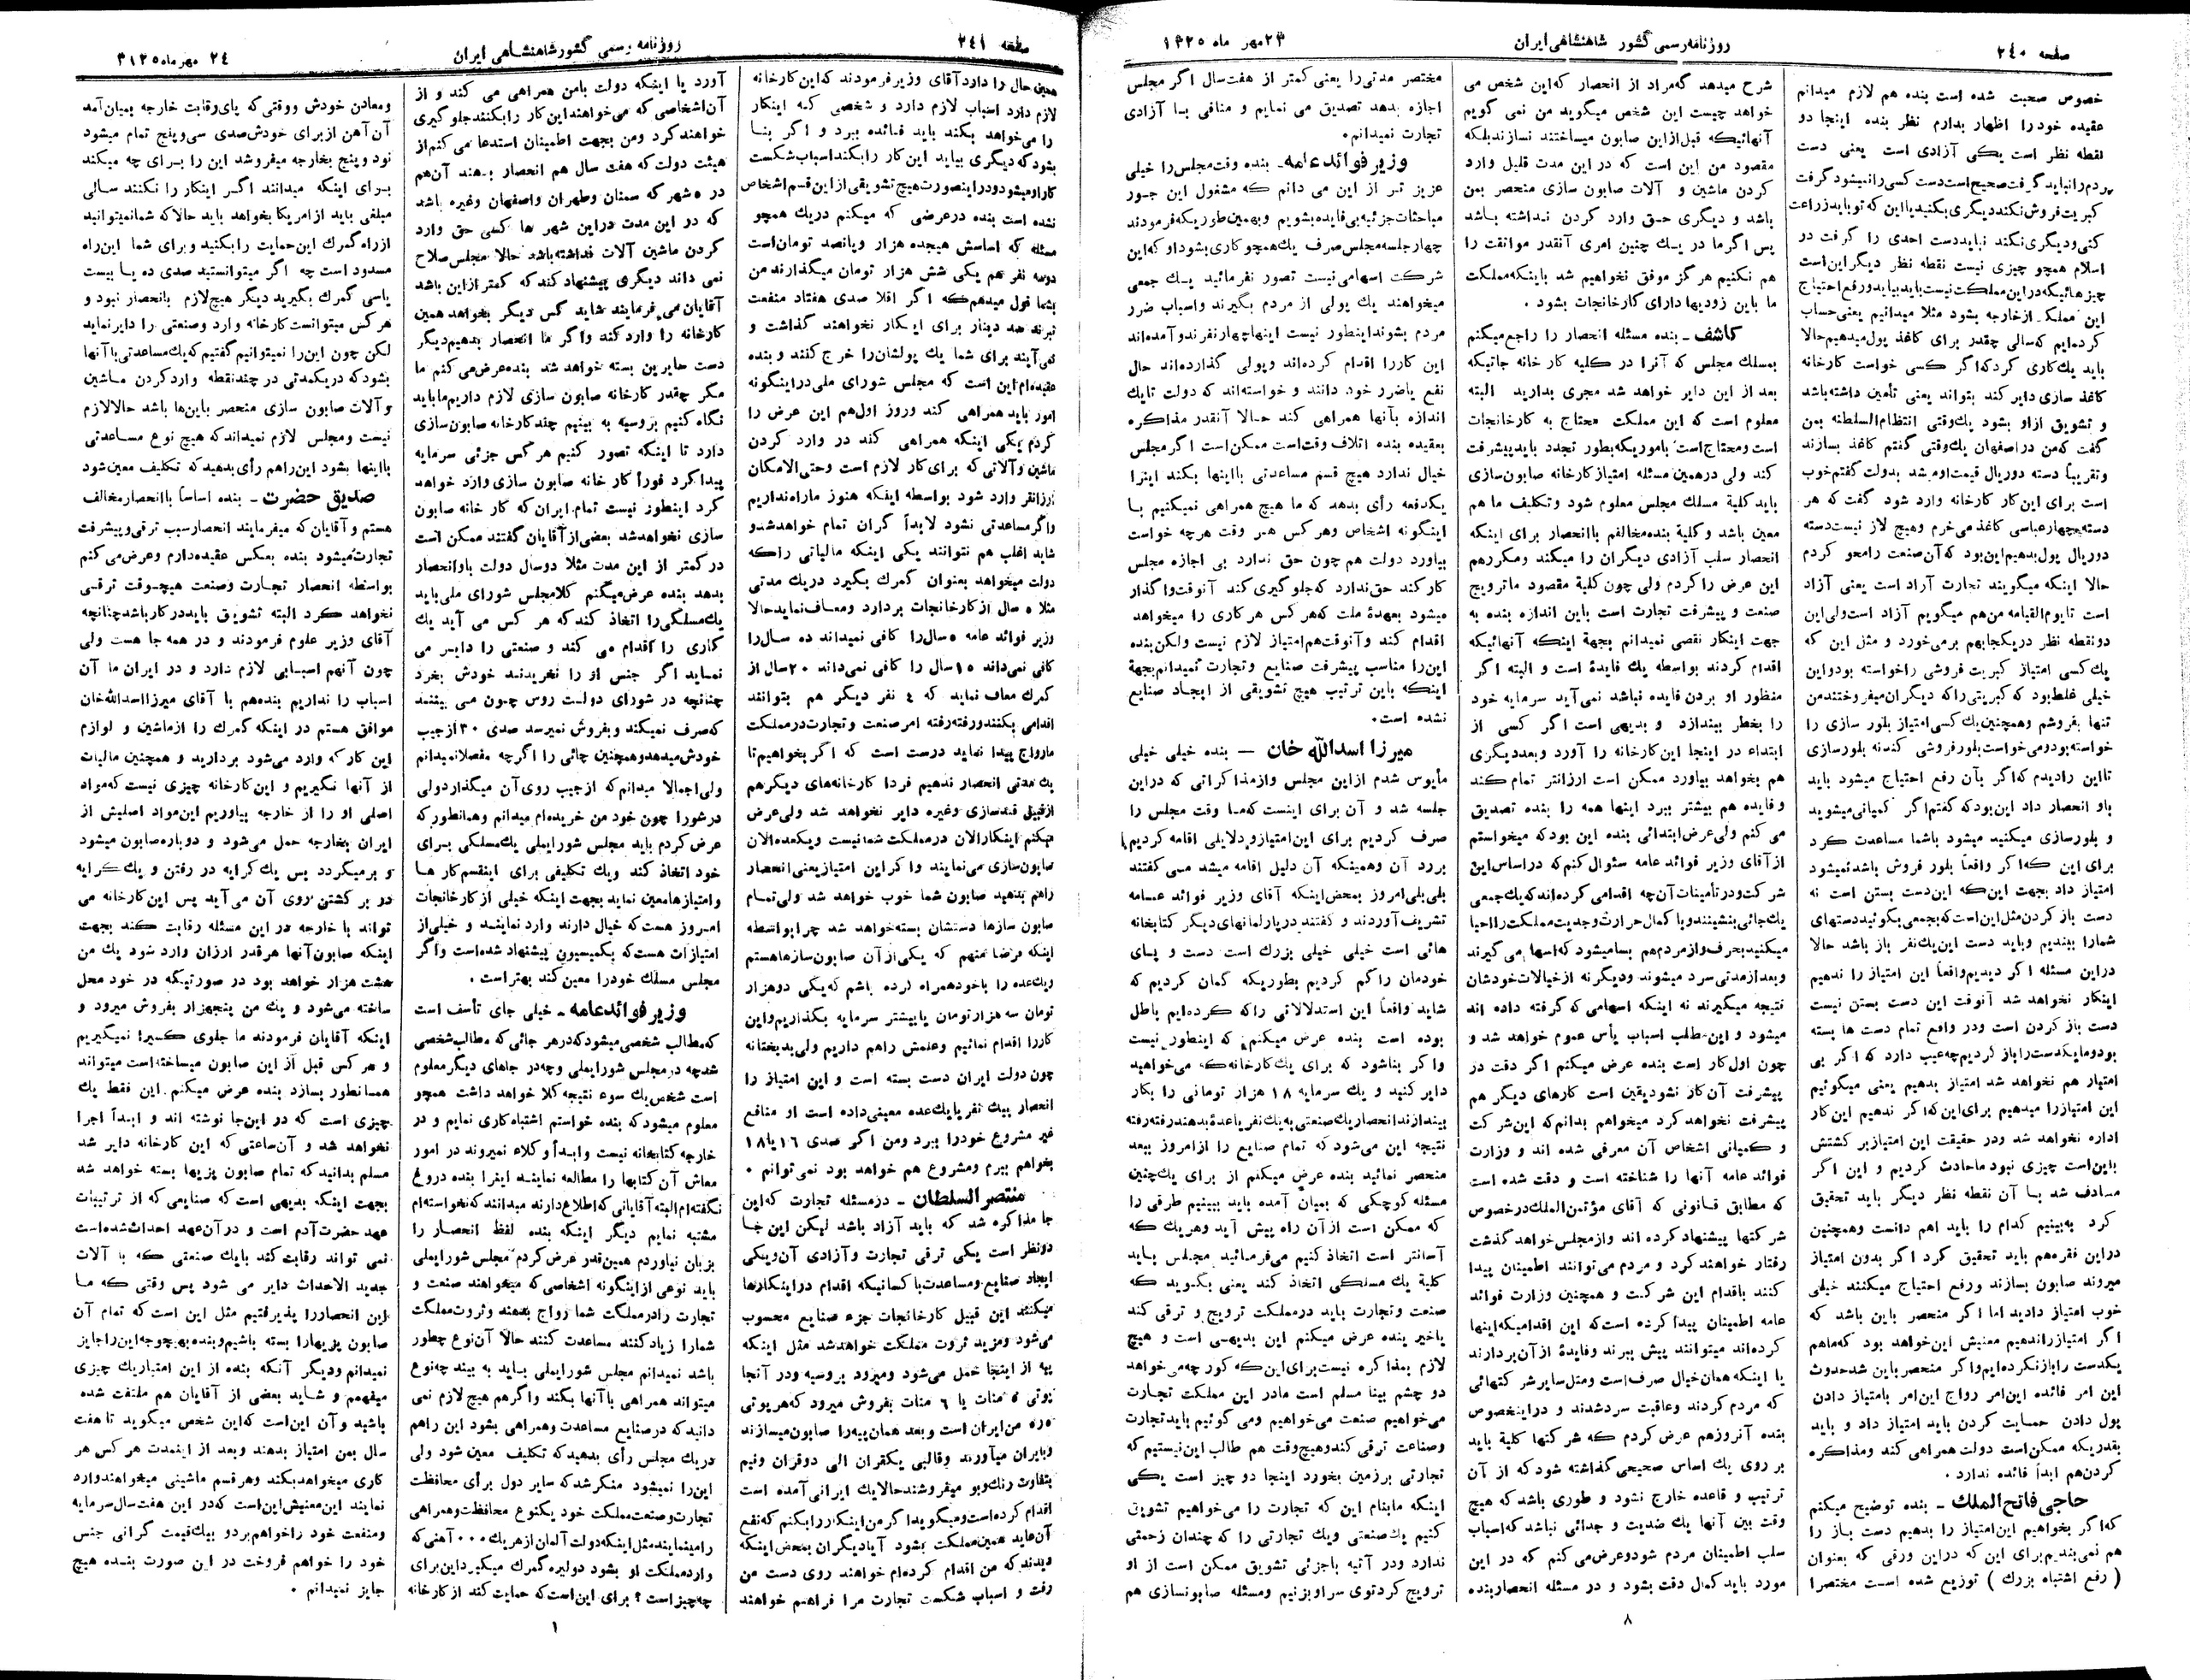 صفحه ٢٤٠
روزنامه رسمی کشور شاهنشاهی ایران
٢٣ مهر ماه ١٣٢٥
خصوص صحبت شده است بنده هم لازم میدانم
عقیده خود را اظهار بدارم نظر بنده اینجا دو
نقطه نظر است یکی آزادی است یعنی دست
مردم را نباید گرفت صحیح است دست کسی را نمیشود گرفت
کبریت فروش نکند دیگری بکنید یا این که تو باید زراعت
کنی و دیگری نکند نباید دست احدی را گرفت در
اسلام همچو چیزی نیست نقطه نظر دیگر این است
چیزهائیکه در این مملکت نیست باید بیاید و رفع احتیاج
این مملکت از خارجه بشود مثلا میدانیم یعنی حساب
کرده‌ایم که سالی چقدر برای کاغذ پول میدهیم حالا
باید یک کاری کرد که اگر کسی خواست کارخانه
کاغذ سازی دایر کند بتواند یعنی تأمین داشته باشد
و تشویق از او بشود یک وقتی انتظام السلطنه بمن
گفت که من در اصفهان یک وقتی گفتم کاغذ بسازند
و تقریباً دسته دوریال قیمت او میشد بدولت گفتم خوب
است برای این کار کارخانه وارد شود گفت که هر
دسته چهار عباسی کاغذ می‌خرم و هیچ لاز نیست دسته
دوریال پول بدهیم این بود که آن صنعت را محو کردم
حالا اینکه میگویند تجارت آزاد است یعنی آزاد
است تا یوم القیامه من هم میگویم آزاد است ولی این
دو نقطه نظر در یکجا بهم برمی‌خورد و مثل این که
یک کسی امتیاز کبریت فروشی را خواسته بود و این
خیلی غلط بود که کبریتی را که دیگران میفروختند من
تنها بفروشم و همچنین یک کسی امتیاز بلور سازی را
خواسته بود و می‌خواست بلور فروشی کند نه بلور سازی
تا این را دیدیم که اگر بآن رفع احتیاج میشود باید
باو انحصار داد این بود که گفتم اگر کمپانی میشوید
و بلور سازی میکنید میشود باشما مساعدت کرد
برای این که اگر واقعاً بلور فروش باشد نمیشود
امتیاز داد بجهت این که این دست بستن است نه
دست باز کردن مثل این است که بجمعی بگوئید دستهای
شما را ببندیم و باید دست این یک نفر باز باشد حالا
در این مسئله اگر دیدیم واقعاً این امتیاز را ندهیم
اینکار نخواهد شد آنوقت این دست بستن نیست
دست باز کردن است و در واقع تمام دست ها بسته
بود و ما یکدست را باز کردیم چه عیب دارد که اگر بی
امتیاز هم نخواهد شد امتیاز بدهیم یعنی میگوئیم
این امتیاز را میدهیم برای این که اگر ندهیم این کار
اداره نخواهد شد و در حقیقت این امتیاز بر کشتش
باین است چیزی نبود ما حادث کردیم و این اگر
مصادف شد با آن نقطه نظر دیگر باید تحقیق
کرد به‌بینیم کدام را باید اهم دانست و همچنین
در این فقره هم باید تحقیق کرد اگر بدون امتیاز
میروند صابون بسازند و رفع احتیاج میکنند خیلی
خوب امتیاز دادید اما اگر منحصر باین باشد که
اگر امتیاز راندهیم معنیش این خواهد بود که ما هم
یکدست را باز نکرده‌ایم و اگر منحصر باین شد حدوث
این امر فائده این امر رواج این امر بامتیاز دادن
پول دادن حمایت کردن باید امتیاز داد و باید
بقدریکه ممکن است دولت همراهی کند و مذاکره
کردن هم ابداً فائده ندارد .
حاجی فاتح الملک ـ بنده توضیح میکنم
که اگر بخواهیم این امتیاز را بدهیم دست باز را
هم نمی‌بندیم برای این که در این ورقی که بعنوان
( رفع اشتباه بزرگ ) توزیع شده است مختصرا
شرح میدهد که مراد از انحصار که این شخص می
خواهد چیست این شخص میگوید من نمی گویم
آنهائیکه قبل از این صابون میساختند نسازند بلکه
مقصود من این است که در این مدت قلیل وارد
کردن ماشین و آلات صابون سازی منحصر بمن
باشد و دیگری حق وارد کردن نداشته باشد
پس اگر ما در یک چنین امری آنقدر موافقت را
هم نکنیم هرگز موفق نخواهیم شد باینکه مملکت
ما باین زودیها دارای کارخانجات بشود .
کاشف ـ بنده مسئله انحصار را راجع میکنم
بمسلک مجلس که آنرا در کلیه کار خانه جاتیکه
بعد از این دایر خواهد شد مجری بدارید البته
معلوم است که این مملکت محتاج به کارخانجات
است و محتاج است بامور یکه بطور تجدد باید پیشرفت
کند ولی در همین مسئله امتیاز کارخانه صابون‌سازی
باید کلیهٔ مسلک مجلس معلوم شود و تکلیف ما هم
معین باشد و کلیهٔ بنده مخالفم با انحصار برای اینکه
انحصار سلب آزادی دیگران را میکند و مکرر هم
این عرض را کردم ولی چون کلیهٔ مقصود ما ترویج
صنعت و پیشرفت تجارت است باین اندازه بنده به
جهت اینکار نقصی نمیدانم بجههٔ اینکه آنهائیکه
اقدام کردند بواسطه یك فایدهٔ است و البته اگر
منظور او بردن فایده نباشد نمی‌آید سرمایه خود
را بخطر بیندازد و بدیهی است اگر کسی از
ابتداء در اینجا این کارخانه را آورد و بعد دیگری
هم بخواهد بیاورد ممکن است ارزانتر تمام کند
و فایده هم بیشتر ببرد اینها همه را بنده تصدیق
می کنم ولی عرض ابتدائی بنده این بود که میخواستم
از آقای وزیر فوائد عامه سئوال کنم که در اساس این
شرکت و در تأمینات آن چه اقدامی کرده‌اند که یک جمعی
یک جائی بنشینند و با کمال حرارت و جدیت مملکت را احیا
میکنید بحرف و از مردم هم بسا میشود که اسهامی گیرند
و بعد از مدتی سرد میشوند و دیگر نه از خیالات خودشان
نتیجه میگیرند نه اینکه اسهامی که گرفته داده اند
میشود و این مطلب اسباب یأس عموم خواهد شد و
چون اول کار است بنده عرض میکنم اگر دقت در
پیشرفت آن کار نشود یقین است کارهای دیگر هم
پیشرفت نخواهد کرد میخواهم بدانم که این شرکت
و کمپانی اشخاص آن معرفی شده اند و وزارت
فوائد عامه آنها را شناخته است و دقت شده است
که مطابق قانونی که آقای مؤتمن الملک در خصوص
شرکتها پیشنهاد کرده اند و از مجلس خواهد گذشت
رفتار خواهند کرد و مردم می‌توانند اطمینان پیدا
کنند باقدام این شرکت و همچنین وزارت فوائد
عامه اطمینان پیدا کرده است که این اقدامیکه اینها
کرده‌اند میتوانند پیش ببرند و فایدهٔ از آن بردارند
یا اینکه همان خیال صرف است و مثل سایر شرکتهائی
که مردم کردند و عاقبت سرد شدند و در اینخصوص
بنده آنروز هم عرض کردم که شرکتها کلیهٔ باید
بر روی یک اساس صحیحی گذاشته شود که از آن
ترتیب و قاعده خارج نشود و طوری باشد که هیچ
وقت بین آنها یك ضدیت و جدائی نباشد که اسباب
سلب اطمینان مردم شود و عرض می کنم که در این
مورد باید کمال دقت بشود و در مسئله انحصار بنده
مختصر مدتی را یعنی کمتر از هفت سال اگر مجلس
اجازه بدهد تصدیق می نمایم و منافی با آزادی
تجارت نمیدانم.
وزیر فوائد عامه ـ بنده وقت مجلس را خیلی
عزیز تر از این می دانم که مشغول این جور
مباحثات جزئیه بی فایده بشویم و بهمین طوریکه فرمودند
چهار جلسه مجلس صرف یک همچو کاری بشود او که این
شرکت اسهامی نیست تصور نفرمائید یك جمعی
میخواهند یک پولی از مردم بگیرند و اسباب ضرر
مردم بشوند اینطور نیست اینها چهار نفرند و آمده‌اند
این کار را اقدام کرده‌اند و پولی گذارده‌اند حال
نفع یا ضرر خود دانند و خواسته‌اند که دولت تا یک
اندازه بآنها همراهی کند حالا آنقدر مذاکره
بعقیده بنده اتلاف وقت است ممکن است اگر مجلس
خیال ندارد هیچ قسم مساعدتی با اینها بکند اینرا
یکدفعه رأی بدهد که ما هیچ همراهی نمیکنیم با
اینگونه اشخاص و هر کس هر وقت هرچه خواست
بیاورد دولت هم چون حق ندارد بی اجازه مجلس
کار کند حق ندارد که جلوگیری کند آنوقت واگذار
میشود بعهدهٔ ملت که هر کس هر کاری را میخواهد
اقدام کند و آنوقت هم امتیاز لازم نیست ولکن بنده
این را مناسب پیشرفت صنایع و تجارت نمیدانم بجههٔ
اینکه باین ترتیب هیچ تشویقی از ایجاد صنایع
نشده است.
میرزا اسدالله خان ـ بنده خیلی خیلی
مأیوس شدم از این مجلس و از مذاکراتی که در این
جلسه شد و آن برای اینست که ما وقت مجلس را
صرف کردیم برای این امتیاز و دلایلی اقامه کردیم
برد آن و همینکه آن دلیل اقامه میشد می گفتند
بلی بلی امروز بمحض اینکه آقای وزیر فوائد عامه
تشریف آوردند و گفتند در پارلمانهای دیگر کتابخانه
هائی است خیلی خیلی بزرگ است دست و پای
خودمان را گم کردیم بطوریکه گمان کردیم که
شاید واقعاً این استدلالاتی را که کرده‌ایم باطل
بوده است بنده عرض میکنم که اینطور نیست
و اگر بنا شود که برای یك کارخانه‌که می‌خواهید
دایر کنید و یك سرمایه ١٨ هزار تومانی را بکار
بیندازند انحصار یک صنعتی به یک نفر یا عدهٔ بدهند رفته رفته
نتیجه این می‌شود که تمام صنایع را از امروز ببعد
منحصر نمائید بنده عرض میکنم از برای یك چنین
مسئله کوچکی که بمیان آمده باید ببینیم طرقی را
که ممکن است از آن راه پیش آید و هر یک که
آسانتر است اتخاذ کنیم می‌فرمائید مجلس باید
کلیهٔ یك مسلکی اتخاذ کند یعنی بگوید که
صنعت و تجارت باید در مملکت ترویج و ترقی کند
یا خیر بنده عرض میکنم این بدیهی است و هیچ
لازم بمذاکره نیست برای این که کور چه می خواهد
دو چشم بینا مسلم است ما در این مملکت تجارت
می‌خواهیم صنعت می‌خواهیم و می گوئیم باید تجارت
و صناعت ترقی کند و هیچ وقت هم طالب این نیستیم که
تجارتی بر زمین بخورد اینجا دو چیز است یکی
اینکه ما بنام این که تجارت را می‌خواهیم تشویق
کنیم یك صنعتی و یک تجارتی را که چندان زحمتی
ندارد و در آتیه باجزئی تشویق ممکن است از او
ترویج کرد توی سر او بزنیم و مسئله صابونسازی هم
٨
صفحه ٢٤١
روزنامه رسمی کشور شاهنشاهی ایران
٢٤ مهر ماه ١٣٢٥
همین حال را دارد آقای وزیر فرمودند که این کارخانه
لازم دارد اسباب لازم دارد و شخصی که اینکار
را می‌خواهد بکند باید فائده ببرد و اگر بنا
بشود که دیگری بیاید این کار را بکند اسباب شکست
کار او میشود و در اینصورت هیچ تشویقی از این قسم اشخاص
نشده است بنده در عرضی که میکنم در یك همچو
مسئله که اساسش هیجده هزار و پانصد تومان است
دو سه نفر هم یکی شش هزار تومان میگذارند من
بشما قول میدهم که اگر اقلا صدی هفتاد منفعت
نبرند صد دینار برای اینکار نخواهند گذاشت و
نمی‌آیند برای شما یك پولشان را خرج کنند و بنده
عقیده‌ام این است که مجلس شورای ملی در اینگونه
امور باید همراهی کند و روز اول هم این عرض را
کردم یکی اینکه همراهی کند در وارد کردن
ماشین و آلاتی که برای کار لازم است و حتی الامکان
ارزانتر وارد شود بواسطه اینکه هنوز ما راه نداریم
و اگر مساعدتی نشود لابداً گران تمام خواهد شد و
شاید اغلب هم نتوانند یکی اینکه مالیاتی را که
دولت میخواهد بعنوان گمرک بگیرد در یك مدتی
مثلا ٥ سال از کارخانجات بردارد و معاف نماید حالا
وزیر فوائد عامه ٥ سال را کافی نمیداند ده سال را
کافی نمی‌داند ١٥ سال را کافی نمی‌داند ٢٠ سال از
گمرک معاف نماید که ٤ نفر دیگر هم بتوانند
اقدامی بکنند و رفته رفته امر صنعت و تجارت در مملکت
ما رواج پیدا نماید درست است که اگر بخواهیم تا
یك مدتی انحصار ندهیم فردا کارخانه‌های دیگر هم
از قبیل قند سازی و غیره دایر نخواهد شد ولی عرض
میکنم اینکار الان در مملکت شما نیست و یکعده الان
صابون‌سازی می‌نمایند و اگر این امتیاز یعنی انحصار
را هم بدهید صابون شما خوب خواهد شد ولی تمام
صابون سازها دستشان بسته خواهد شد چرا بواسطه
اینکه فرضاً منهم که یکی از آن صابون‌سازها هستم
و یک عده را با خود همراه کرده باشم که یکی دو هزار
تومان سه هزار تومان یا بیشتر سرمایه بگذاریم و این
کار را اقدام نمائیم و علمش را هم داریم ولی بدبختانه
چون دولت ایران دست بسته است و این امتیاز را
انحصار بیک نفر یا یک عده معینی داده است او منافع
غیر مشروع خود را ببرد و من اگر صدی ١٦ یا ١٨
بخواهم ببرم و مشروع هم خواهد بود نمی‌توانم .
منتصر السلطان ـ در مسئله تجارت که این
جا مذاکره شد که باید آزاد باشد لیکن این جا
دو نظر است یکی ترقی تجارت و آزادی آن و یکی
ایجاد صنایع و مساعدت با کسانیکه اقدام در اینکارها
میکنند این قبیل کارخانجات جزء صنایع محسوب
می‌شود و مزید ثروت مملکت خواهد شد مثل اینکه
پیه از اینجا حمل می‌شود و میرود بروسیه و در آنجا
پوتی ٥ منات یا ٦ منات بفروش میرود که هر پوتی
من ایران است و بعد همان پیه را صابون میسازند
و بایران میآورند و قالبی یکقران الی دو قران و نیم
بتفاوت رنگ و بو میفروشند حالا یك ایرانی آمده است
اقدام کرده است و میگوید اگر من اینکار را بکنم که نفع
آن عاید همین مملکت بشود آیا دیگران بمحض اینکه
دیدند که من اقدام کرده‌ام خواهند روی دست من
رفت و اسباب شکست تجارت مرا فراهم خواهند
آورد یا اینکه دولت بامن همراهی می کند و از
آن اشخاصی که می‌خواهند این کار را بکنند جلوگیری
خواهند کرد و من بجهت اطمینان استدعا می کنم از
هیئت دولت که هفت سال هم انحصار بدهند آن هم
در ٥ شهر که سمنان و طهران و اصفهان و غیره باشد
که در این مدت در این شهر ها کسی حق وارد
کردن ماشین آلات نداشته باشد حالا مجلس صلاح
نمی داند دیگری پیشنهاد کند که کمتر از این باشد
آقایان می فرمایند شاید کس دیگر بخواهد همین
کارخانه را وارد کند و اگر ما انحصار بدهیم دیگر
دست سایرین بسته خواهد شد بنده عرض می کنم ما
مگر چقدر کارخانه صابون سازی لازم داریم ما باید
نگاه کنیم بروسیه به بینیم چند کارخانه صابون‌سازی
دارد تا اینکه تصور کنیم هر کس جزئی سرمایه
پیدا کرد فوراً کار خانه صابون سازی وارد خواهد
کرد اینطور نیست تمام ایران که کار خانه صابون
سازی نخواهد شد بعضی از آقایان گفتند ممکن است
در کمتر از این مدت مثلا دو سال دولت باو انحصار
بدهد بنده عرض میکنم کلا مجلس شورای ملی باید
یك مسلکی را اتخاذ کند که هر کس می آید یك
کاری را اقدام می کند و صنعتی را دایر می
نماید اگر جنس او را نخریدند خودش بخرد
چنانچه در شورای دولت روس چون می بینند
که صرف نمیکند و بفروش نمیرسد صدی ٣٠ از جیب
خودش میدهد و همچنین چائی را اگرچه مفصلا نمیدانم
ولی اجمالا میدانم که از جیب روی آن میگذارد ولی
در شورا چون خود من خریده‌ام میدانم و همانطور که
عرض کردم باید مجلس شورایملی یک مسلکی برای
خود اتخاذ کند و یک تکلیفی برای اینقسم کار ها
و امتیازها معین نماید بجهت اینکه خیلی از کارخانجات
امروز هست که خیال دارند وارد نمایند و خیلی از
امتیازات هست که بکمیسیون پیشنهاد شده است و اگر
مجلس مسلک خود را معین کند بهتر است .
وزیر فوائد عامه ـ خیلی جای تأسف است
که مطالب شخصی میشود که در هر جائی که مطالب شخصی
شد چه در مجلس شورایملی و چه در جاهای دیگر معلوم
است شخص یك سوء نتیجه کلا خواهد داشت همچو
معلوم میشود که بنده خواستم اشتباه کاری نمایم و در
خارجه کتابخانه نیست و ابداً وکلاء نمیروند در امور
معاش آن کتابها را مطالعه نمایند اینرا بنده دروغ
نگفته‌ام البته آقایانی که اطلاع دارند میدانند که نخواسته‌ام
مشتبه نمایم دیگر اینکه بنده لفظ انحصار را
بزبان نیاوردم همین قدر عرض کردم مجلس شورایملی
باید نوعی از اینگونه اشخاصی که میخواهند صنعت و
تجارت را در مملکت شما رواج بدهند و ثروت مملکت
شما را زیاد کنند مساعدت کنند حالا آن نوع چطور
باشد نمیدانم مجلس شورایملی باید به بیند چه نوع
میتواند همراهی با آنها بکند و اگر هم هیچ لازم نمی
دانید که در صنایع مساعدت و همراهی بشود این را هم
در یك مجلس رأی بدهید که تکلیف معین شود ولی
این را نمیشود منکر شد که سایر دول برای محافظت
تجارت و صنعت مملکت خود یکنوع محافظت و همراهی
را مینمایند مثل اینکه دولت آلمان از هر یک ٠٠٠ آهنی که
وارد مملکت او بشود دو لیره گمرک میگیرد این برای
چه چیز است ؟ برای این است که حمایت کند از کارخانه
و معادن خودش و وقتی که پای رقابت خارجه بمیان آمد
آن آهن از برای خودش صدی سی و پنج تمام میشود
نود و پنج بخارجه میفروشد این را برای چه میکند
برای اینکه میدانند اگر اینکار را نکنند سالی
مبلغی باید از امریکا بخواهد باید حالا که شما نمیتوانید
از راه گمرک این حمایت را بکنید و برای شما این راه
مسدود است چه اگر میتوانستید صدی ده یا بیست
یا سی گمرک بگیرید دیگر هیچ لازم بانحصار نبود و
هر کس میتوانست کارخانه وارد و صنعتی را دایر نماید
لکن چون این را نمیتوانیم گفتیم که یک مساعدتی با آنها
بشود که در یکمدتی در چند نقطه وارد کردن ماشین
و آلات صابون سازی منحصر باینها باشد حالا لازم
نیست و مجلس لازم نمیداند که هیچ نوع مساعدتی
با اینها بشود این را هم رأی بدهید که تکلیف معین شود
صدیق حضرت ـ بنده اساساً با انحصار مخالف
هستم و آقایان که میفرمایند انحصار سبب ترقی و پیشرفت
تجارت میشود بنده بعکس عقیده دارم و عرض می کنم
بواسطه انحصار تجارت و صنعت هیچوقت ترقی
نخواهد کرد البته تشویق باید در کار باشد چنانچه
آقای وزیر علوم فرمودند و در همه جا هست ولی
چون آنهم اسبابی لازم دارد و در ایران ما آن
اسباب را نداریم بنده هم با آقای میرزا اسدالله خان
موافق هستم در اینکه گمرک را از ماشین و لوازم
این کار که وارد می‌شود بردارید و همچنین مالیات
از آنها نگیریم و این کارخانه چیزی نیست که مواد
اصلی او را از خارجه بیاوریم این مواد اصلیش از
ایران بخارجه حمل می‌شود و دوباره صابون میشود
و برمیگردد پس یك کرایه در رفتن و یك کرایه
در برگشتن روی آن می‌آید پس این کارخانه می
تواند با خارجه در این مسئله رقابت کند بجهت
اینکه صابون آنها هرقدر ارزان وارد شود یك من
هشت هزار خواهد بود در صورتیکه در خود محل
ساخته می‌شود و یك من پنجهزار بفروش میرود و
اینکه آقایان فرمودند ما جلوی کسیرا نمیگیریم
و هر کس قبل از این صابون میساخته است میتواند
همانطور بسازد بنده عرض میکنم این فقط یك
چیزی است که در این‌جا نوشته اند و ابداً اجرا
نخواهد شد و آن ساعتی که این کارخانه دایر شد
مسلم بدانید که تمام صابون پزیها بسته خواهد شد
بجهت اینکه بدیهی است که صنایعی که از ترتیبات
عهد حضرت آدم است و در آن عهد احداث شده است
نمی تواند رقابت کند بایک صنعتی که با آلات
جدید الاحداث دایر می شود پس وقتی که ما
این انحصار را پذیرفتیم مثل این است که تمام آن
صابون پزیها را بسته باشیم و بنده بهیچوجه این را جایز
نمیدانم و دیگر آنکه بنده از این امتیاز یک چیزی
میفهمم و شاید بعضی از آقایان هم ملتفت شده
باشید و آن این است که این شخص میگوید تا هفت
سال بمن امتیاز بدهند و بعد از اینمدت هر کس هر
کاری میخواهد بکند و هر قسم ماشینی میخواهند وارد
نمایند این معنیش این است که در این هفت سال سرمایه
و منفعت خود را خواهم برد و بیک قیمت گرانی جنس
خود را خواهم فروخت در این صورت بنده هیچ
جایز نمیدانم .
١